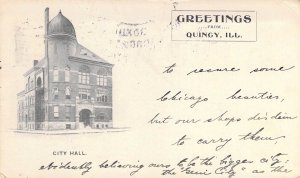 GREETINGS
FROM
QUINCY, ILL.
to secure some
Chicago beauties,
but our shops disdain
to carry them,
CITY HALL.
evidently believing ours to be the bigger city;
the "Gem City" as the